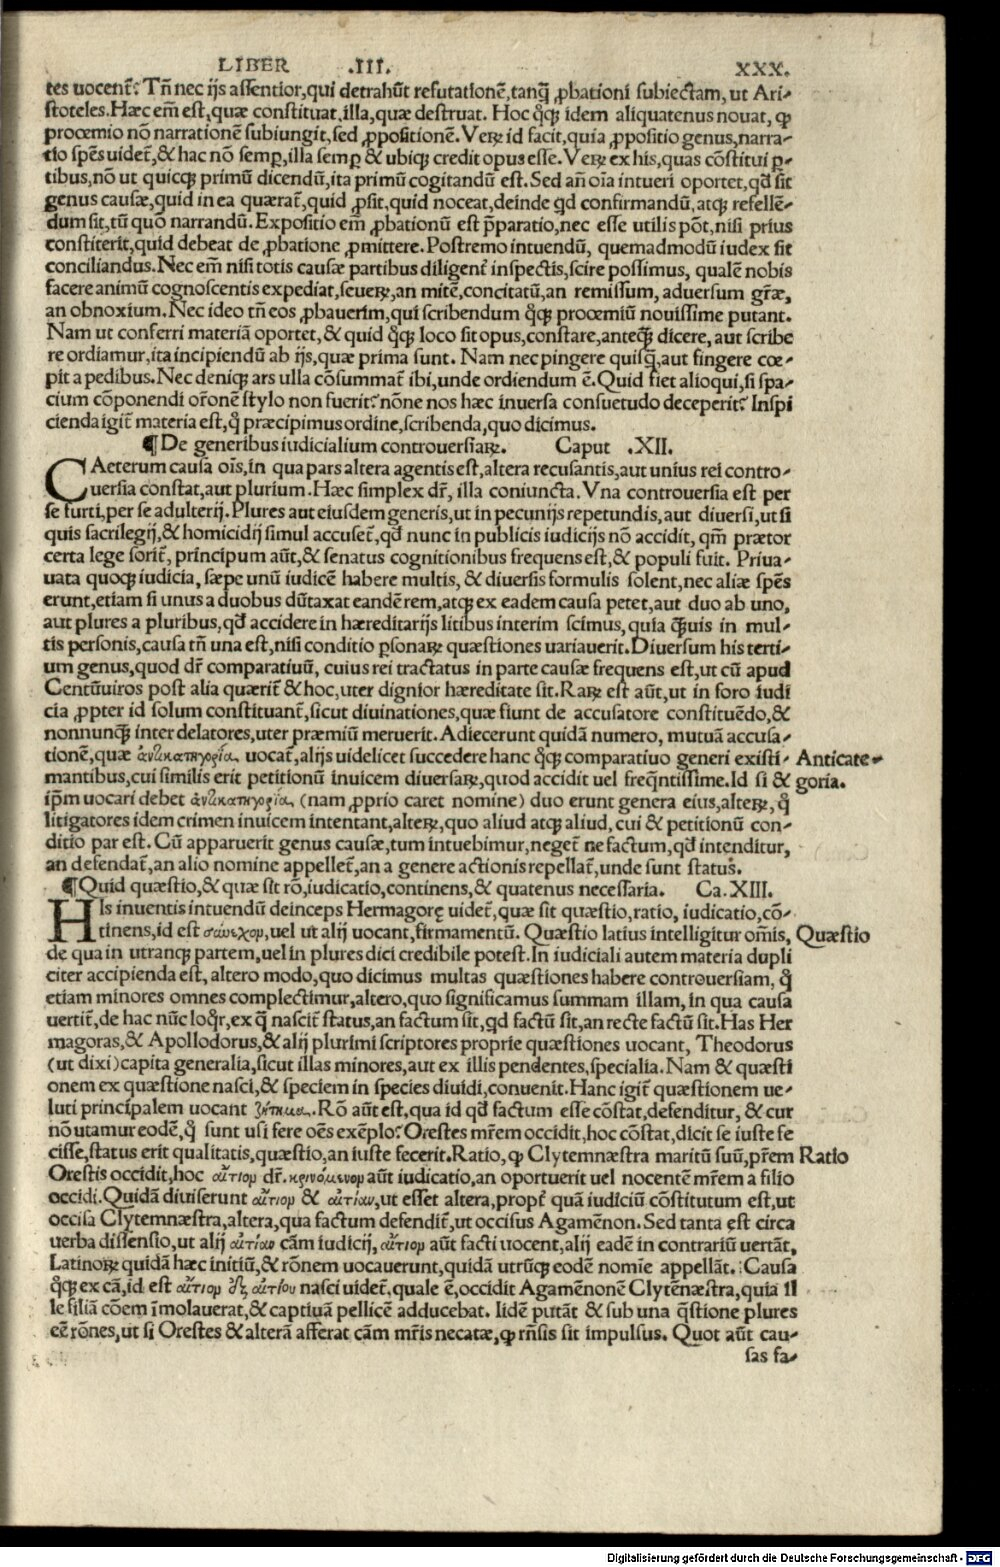 LIBER .III. XXX.
tes uocent᷑? Tñ nec ijs assentior,qui detrahũt refutationẽ,tanq̃ ꝓbationi subiectam, ut Ari-
stoteles.Hæc em̃ est,quæ constituat,illa,quæ destruat. Hoc q̊q; idem aliquatenus nouat, ꝙ
procemio nõ narrationẽ subiungit,sed ꝓpositionẽ.Veꝝ id facit,quia ꝓpositio genus,narra-
tio spẽs uidet᷑,& hac nõ semp̱,illa semp̱ & ubiq; credit opus esse.Veꝝ ex his,quas cõstitui p̱-
tibus,nõ ut quicq; primũ dicendũ,ita primũ cogitandũ est.Sed añ oĩa intueri oportet,qđ sit
genus causæ,quid in ea quærat᷑,quid ꝓsit,quid noceat,deinde qd confirmandũ,atq; refellẽ-
dum sit,tũ quõ narrandũ.Expositio em̃ ꝓbationũ est p̃paratio,nec esse utilis põt,nisi prius
constiterit,quid debeat de ꝓbatione ꝓmittere.Postremo intuendũ, quemadmodũ iudex sit
conciliandus.Nec em̃ nisi totis causæ partibus diligent᷑ inspectis,scire possimus, qualẽ nobis
facere animũ cognoscentis expediat,seueꝝ,an mitẽ,concitatũ,an remissum, aduersum gr̃æ,
an obnoxium.Nec ideo tñ eos ꝓbauerim,qui scribendum q̊q; procemiũ nouissime putant.
Nam ut conferri materiã oportet,& quid q̊q; loco sit opus,constare,anteq̃ dicere, aut scribe
re ordiamur,ita incipiendũ ab ijs,quæ prima sunt. Nam nec pingere quisq̃,aut fingere cœ-
pit a pedibus.Nec deniq; ars ulla cõsummat᷑ ibi,unde ordiendum ẽ.Quid fiet alioqui,si spa-
cium cõponendi or̃onẽ stylo non fuerit?nõne nos hæc inuersa consuetudo deceperit? Inspi
cienda igit᷑ materia est,q̊ præcipimus ordine,scribenda,quo dicimus.
¶ De generibus iudicialium controuersiaꝝ. Caput .XII.
CAeterum causa oĩs,in qua pars altera agentis est,altera recusantis,aut unius rei contro-
uersia constat,aut plurium.Hæc simplex dr̃, illa coniuncta. Vna controuersia est per
se furti,per se adulterij.Plures aut eiusdem generis,ut in pecunijs repetundis,aut diuersi,ut si
quis sacrilegij,& homicidij simul accuset᷑,qđ nunc in publicis iudicijs nõ accidit, qm̃ prætor
certa lege sorit᷑, principum aũt,& senatus cognitionibus frequens est,& populi fuit. Priua-
uata quoq; iudicia, sæpe unũ iudicẽ habere multis, & diuersis formulis solent,nec aliæ spẽs
erunt,etiam si unus a duobus dũtaxat eandẽ rem,atq; ex eadem causa petet,aut duo ab uno,
aut plures a pluribus,qđ accidere in hæreditarijs litibus interim scimus,quia q̃uis in mul-
tis personis,causa tñ una est,nisi conditio p̱sonaꝝ quæstiones uariauerit.Diuersum his terti-
um genus,quod dr̃ comparatiuũ, cuius rei tractatus in parte causæ frequens est,ut cũ apud
Centũuiros post alia quærit᷑ & hoc,uter dignior hæreditate sit.Raꝝ est aũt,ut in foro iudi
cia ꝓpter id solum constituant᷑,sicut diuinationes,quæ fiunt de accusatore constituẽdo,&
nonnunq̃ inter delatores,uter præmiũ meruerit.Adiecerunt quidã numero, mutuã accusa-
tionẽ,quæ ἀντικατηγορία uocat᷑,alijs uidelicet succedere hanc q̊q; comparatiuo generi existi- Anticate-
mantibus,cui similis erit petitionũ inuicem diuersaꝝ,quod accidit uel freq̃ntissime.Id si & goria.
ip̃m uocari debet ἀντικατηγορία (nam ꝓprio caret nomine) duo erunt genera eius,alteꝝ, q̊
litigatores idem crimen inuicem intentant,alteꝝ,quo aliud atq; aliud, cui & petitionũ con-
ditio par est. Cũ apparuerit genus causæ,tum intuebimur,neget᷑ ne factum,qđ intenditur,
an defendat᷑,an alio nomine appellet᷑,an a genere actionis repellat᷑,unde sunt status.
¶Quid quæstio,& quæ sit rõ,iudicatio,continens,& quatenus necessaria. Ca.XIII.
HIs inuentis intuendũ deinceps Hermagorę uidet᷑,quæ sit quæstio,ratio, iudicatio,cõ-
tinens,id est σύνεχον,uel ut alij uocant,firmamentũ. Quæstio latius intelligitur om̃is, Quæstio
de qua in utranq; partem,uel in plures dici credibile potest.In iudiciali autem materia dupli
citer accipienda est, altero modo,quo dicimus multas quæstiones habere controuersiam, q̊
etiam minores omnes complectimur,altero,quo significamus summam illam, in qua causa
uertit᷑,de hac nũc loq̊r,ex q̃ nascit᷑ status,an factum sit,qd factũ sit,an recte factũ sit.Has Her
magoras,& Apollodorus,& alij plurimi scriptores proprie quæstiones uocant, Theodorus
(ut dixi)capita generalia,sicut illas minores,aut ex illis pendentes,specialia.Nam & quæsti
onem ex quæstione nasci,& speciem in species diuidi,conuenit.Hanc igit᷑ quæstionem ue-
luti principalem uocant ζήτημα.Rõ aũt est,qua id qđ factum esse cõstat,defenditur, & cur
nõ utamur eodẽ,q̊ sunt usi fere oẽs exẽplo?Orestes mr̃em occidit,hoc cõstat,dicit se iuste fe
cisse,status erit qualitatis,quæstio,an iuste fecerit.Ratio,ꝙ Clytemnæstra maritũ suũ,pr̃em Ratio
Orestis occidit,hoc αἴτιον dr̃.κρινόμενον aũt iudicatio,an oportuerit uel nocentẽ mr̃em a filio
occidi.Quidã diuiserunt αἴτιον & αἰτίαν,ut esset altera,propt᷑ quã iudiciũ cõstitutum est,ut
occisa Clytemnæstra,altera,qua factum defendit᷑,ut occisus Agamẽnon.Sed tanta est circa
uerba dissensio,ut alij αἰτίαν cãm iudicij, αἴτιον aũt facti uocent,alij eadẽ in contrariũ uertãt.
Latinoꝝ quidã hæc initiũ,& rõnem uocauerunt,quidã utrũq; eodẽ nomĩe appellãt. Causa
q̊q; ex cã,id est αἴτιον ἐξ αἰτίου nasci uidet᷑,quale ẽ,occidit Agamẽnonẽ Clytẽnæstra,quia il
le filiã cõem ĩmolauerat,& captiuã pellicẽ adducebat. Iidẽ putãt & sub una q̃stione plures
eẽ rõnes,ut si Orestes & alterã afferat cãm mr̃is necatæ,ꝙ rñsis sit impulsus. Quot aũt cau-
sas fa-
Digitalisierung gefördert durch die Deutsche Forschungsgemeinschaft - DFG